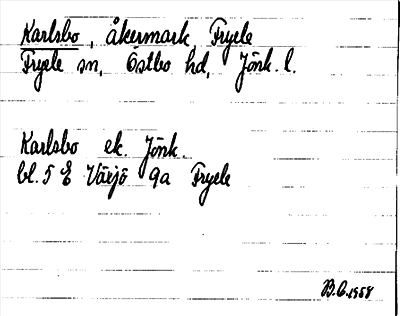 Karlsbo, åkermark, Fryele
Fryele sn, Östbo hd, Jönk. l.
Karlsbo ek. Jönk.
bl. 5 E Växjö 9a Fryele
B.C. 1958